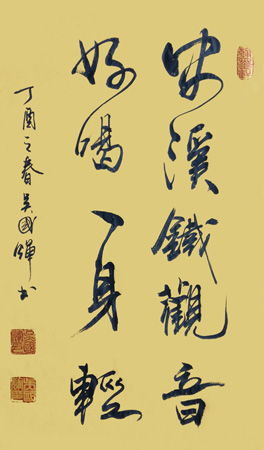 安溪鐵觀音
好喝一身輕
丁酉之春吴國輝书